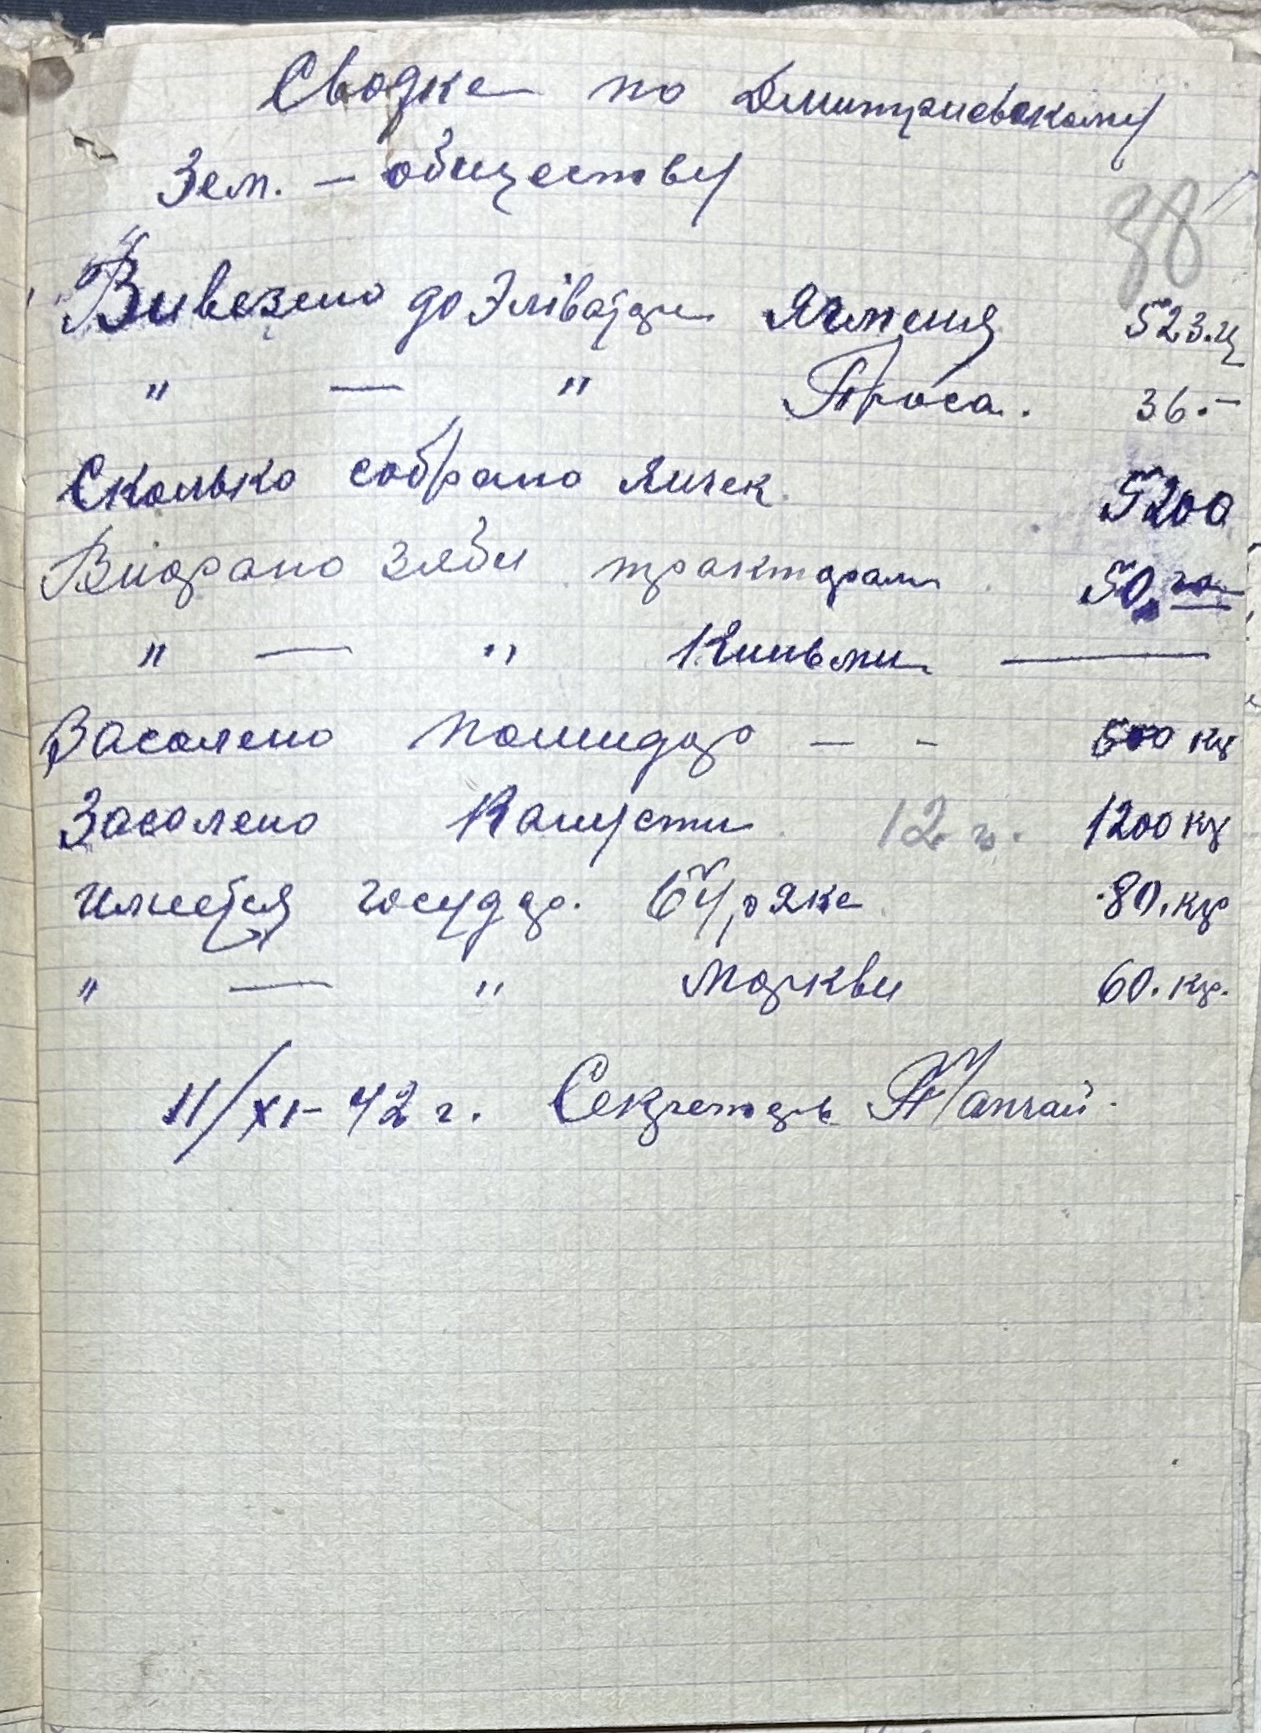 Сводка по Дмитриевскому
Зем. – обществу
38
Вивезено до Эліватора Ячменя 523.ц
" — " Проса. 36.–
Сколько собрано яичек 5200
Виорано Зяби тракторами 50, га
" — " Киньми —
Засолено помидор – – 500 кг
Засолено Капусти 12 ц. 1200 кг
имеется государ. буряка 80. кгр
" — " моркви 60. кгр.
11/XI – 42 г. Секретарь